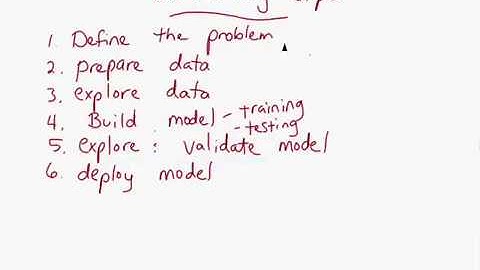 1. Define the problem
2. prepare data
3. explore data
4. Build model - training
- testing
5. explore : validate model
6. deploy model